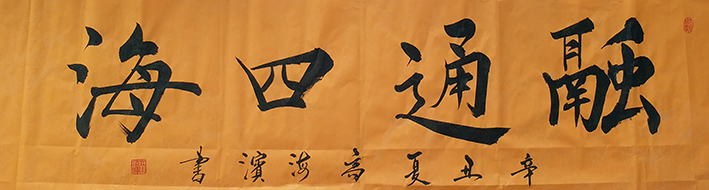 融通四海
辛丑夏高海濱書